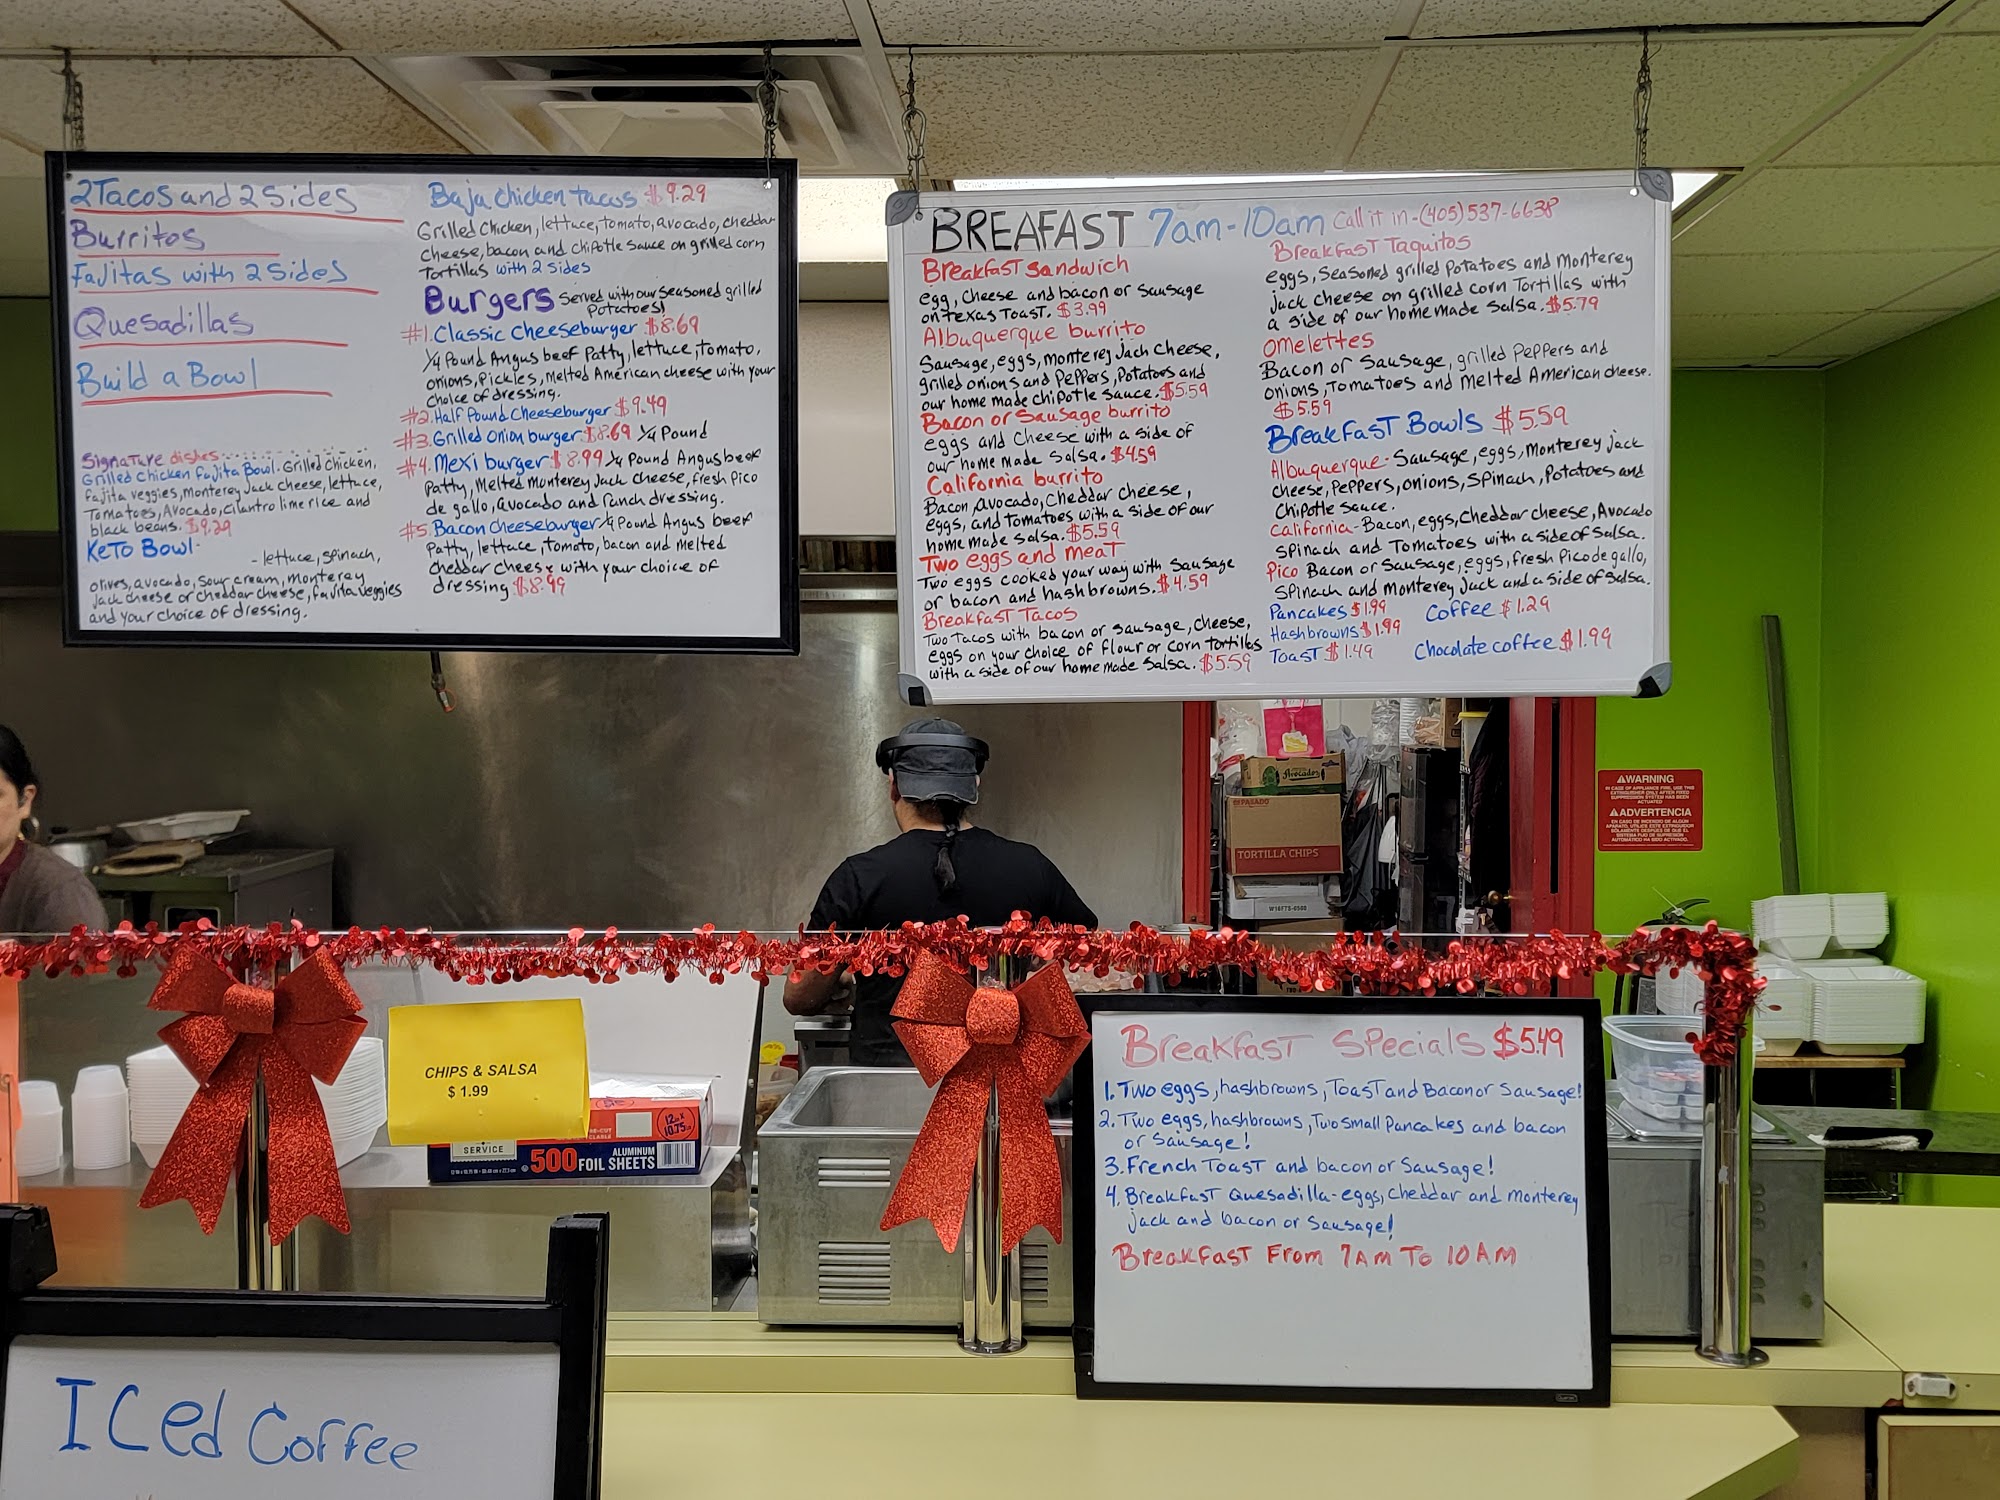 2 Tacos and 2 Sides
Burritos
Fajitas with 2 Sides
Quesadillas
Build a Bowl
Signature dishes
Grilled Chicken Fajita Bowl. Grilled chicken,
fajita veggies, monterey Jack cheese, lettuce,
Tomatoes, Avocado, cilantro lime rice and
black beans. $9.29
Keto Bowl-
- lettuce, spinach,
olives, avocado, sour cream, monterey
Jack cheese or cheddar cheese, fajita veggies
and your choice of dressing.
Baja chicken tacos $9.29
Grilled chicken, lettuce, tomato, avocado, cheddar
cheese, bacon and chipotle sauce on grilled corn
Tortillas with 2 sides
Burgers Served with our seasoned grilled
potatoes!
#1. Classic Cheeseburger $8.69
1/4 Pound Angus beef Patty, lettuce, Tomato,
onions, Pickles, melted American cheese with your
choice of dressing.
#2. Half Pound Cheeseburger $9.49
#3. Grilled onion burger $8.69 1/4 Pound
#4. Mexi burger $8.99 1/4 Pound Angus beef
Patty, Melted monterey Jack cheese, fresh Pico
de gallo, avocado and ranch dressing.
#5. Bacon Cheeseburger 1/4 Pound Angus beef
Patty, lettuce, tomato, bacon and melted
cheddar cheese with your choice of
dressing $8.99
BREAFAST 7am-10am Call it in-(405)537-6638
Breakfast Sandwich
egg, cheese and bacon or sausage
on texas Toast. $3.99
Albuquerque burrito
Sausage, eggs, monterey Jack cheese,
grilled onions and peppers, potatoes and
our home made chipotle sauce. $5.59
Bacon or Sausage burrito
eggs and cheese with a side of
our home made salsa. $4.59
California burrito
Bacon, avocado, cheddar cheese,
eggs, and tomatoes with a side of our
home made salsa. $5.59
Two eggs and meat
Two eggs cooked your way with sausage
or bacon and hashbrowns. $4.59
Breakfast Tacos
Two Tacos with bacon or sausage, cheese,
eggs on your choice of flour or corn Tortillas
with a side of our home made salsa. $5.59
Breakfast Taquitos
eggs, seasoned grilled potatoes and monterey
jack cheese on grilled corn Tortillas with
a side of our home made salsa. $5.79
Omelettes
Bacon or Sausage, grilled Peppers and
onions, Tomatoes and melted American cheese.
$5.59
Breakfast Bowls $5.59
Albuquerque- Sausage, eggs, Monterey Jack
cheese, peppers, onions, spinach, potatoes and
chipotle sauce.
California- Bacon, eggs, cheddar cheese, Avocado
spinach and Tomatoes with a side of salsa.
Pico Bacon or sausage, eggs, fresh Pico de gallo,
spinach and monterey Jack and a side of salsa.
Pancakes $1.99 Coffee $1.29
Hashbrowns $1.99
Toast $1.49 Chocolate coffee $1.99
Avocados
TORTILLA CHIPS
WARNING
IN CASE OF APPLIANCE FIRE, USE THIS
EXTINGUISHER ONLY AFTER FIXED
SUPPRESSION SYSTEM HAS BEEN
ACTUATED
ADVERTENCIA
CHIPS & SALSA
$ 1.99
SERVICE
500 ALUMINUM
FOIL SHEETS
Breakfast Specials $5.49
1. Two eggs, hashbrowns, Toast and Bacon or Sausage!
2. Two eggs, hashbrowns, Two small Pancakes and bacon
or Sausage!
3. French Toast and bacon or Sausage!
4. Breakfast Quesadilla- eggs, cheddar and monterey
jack and bacon or sausage!
Breakfast From 7AM To 10AM
Iced Coffee